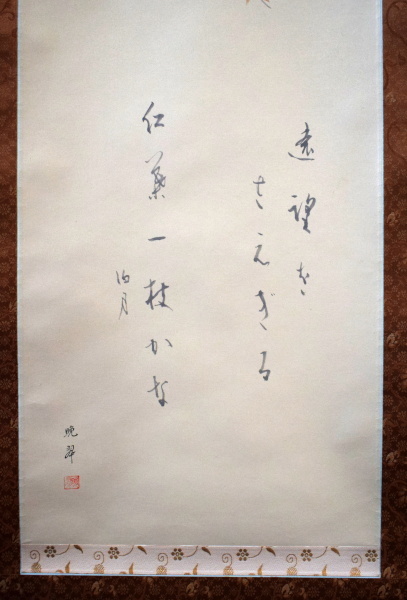 遠望を
さえぎる
仁葉一枝かな
泊月
晩翠